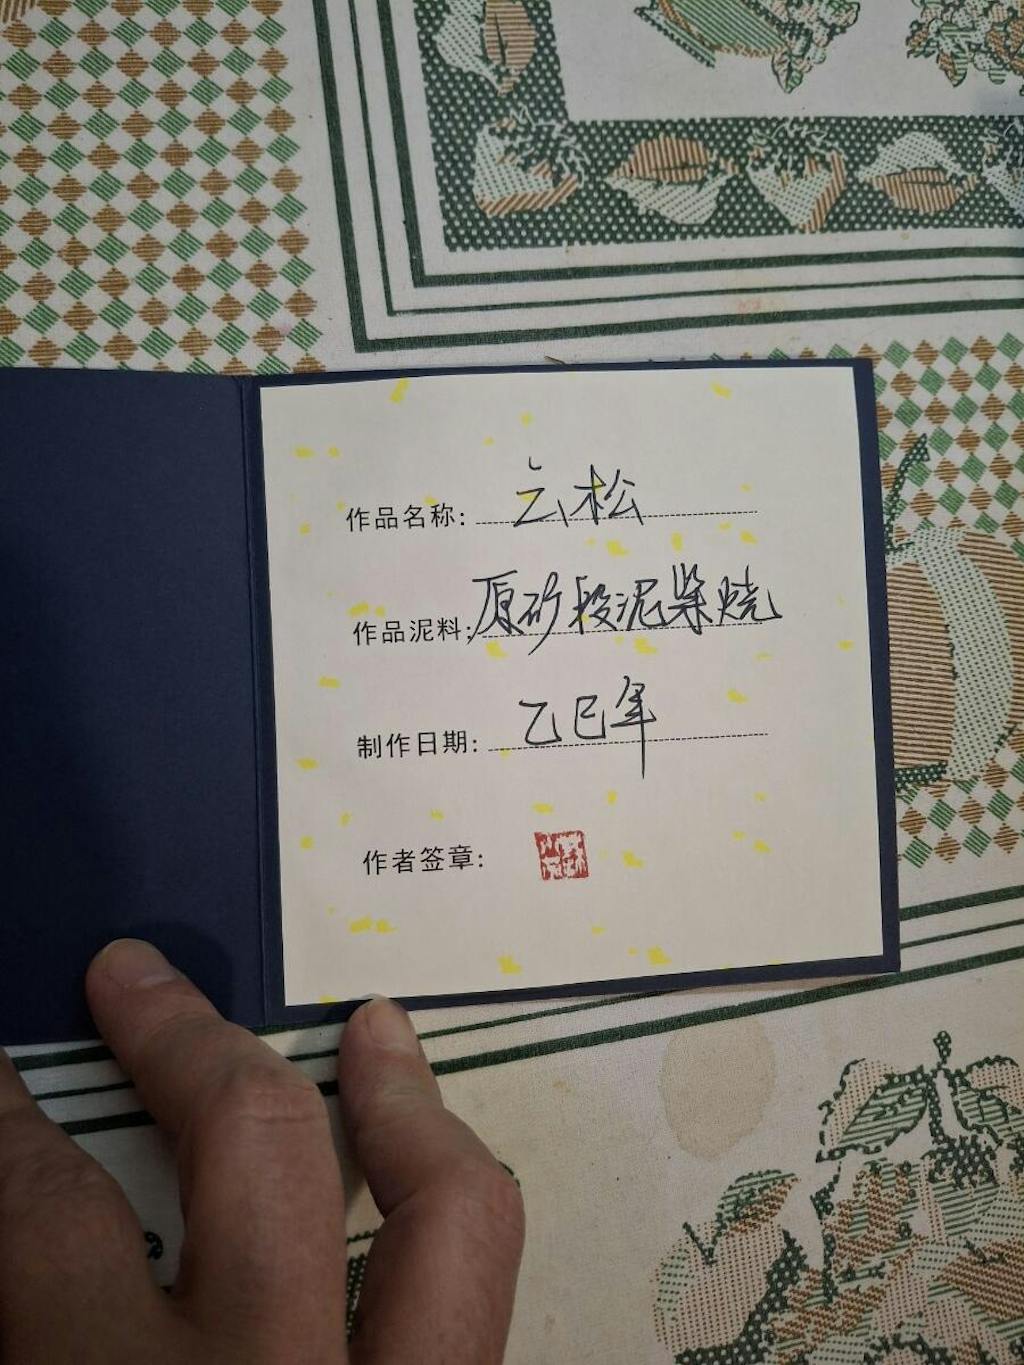 作品名称: 云松
作品泥料: 原矿段泥柴烧
制作日期: 乙巳年
作者签章: